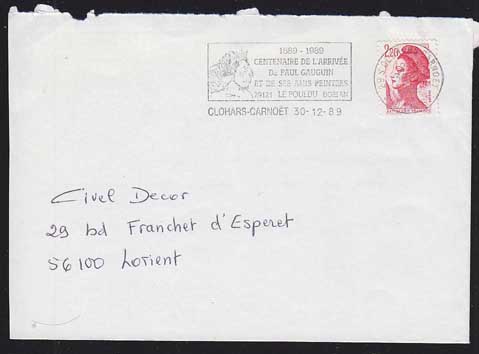 1889 - 1989
CENTENAIRE DE L'ARRIVÉE
DE PAUL GAUGUIN
ET DE SES AMIS PEINTRES
29121 LE POULDU
CLOHARS-CARNOËT 30-12-89
2,20
Civel Decor
29 bd Franchet d'Esperet
56100 Lorient